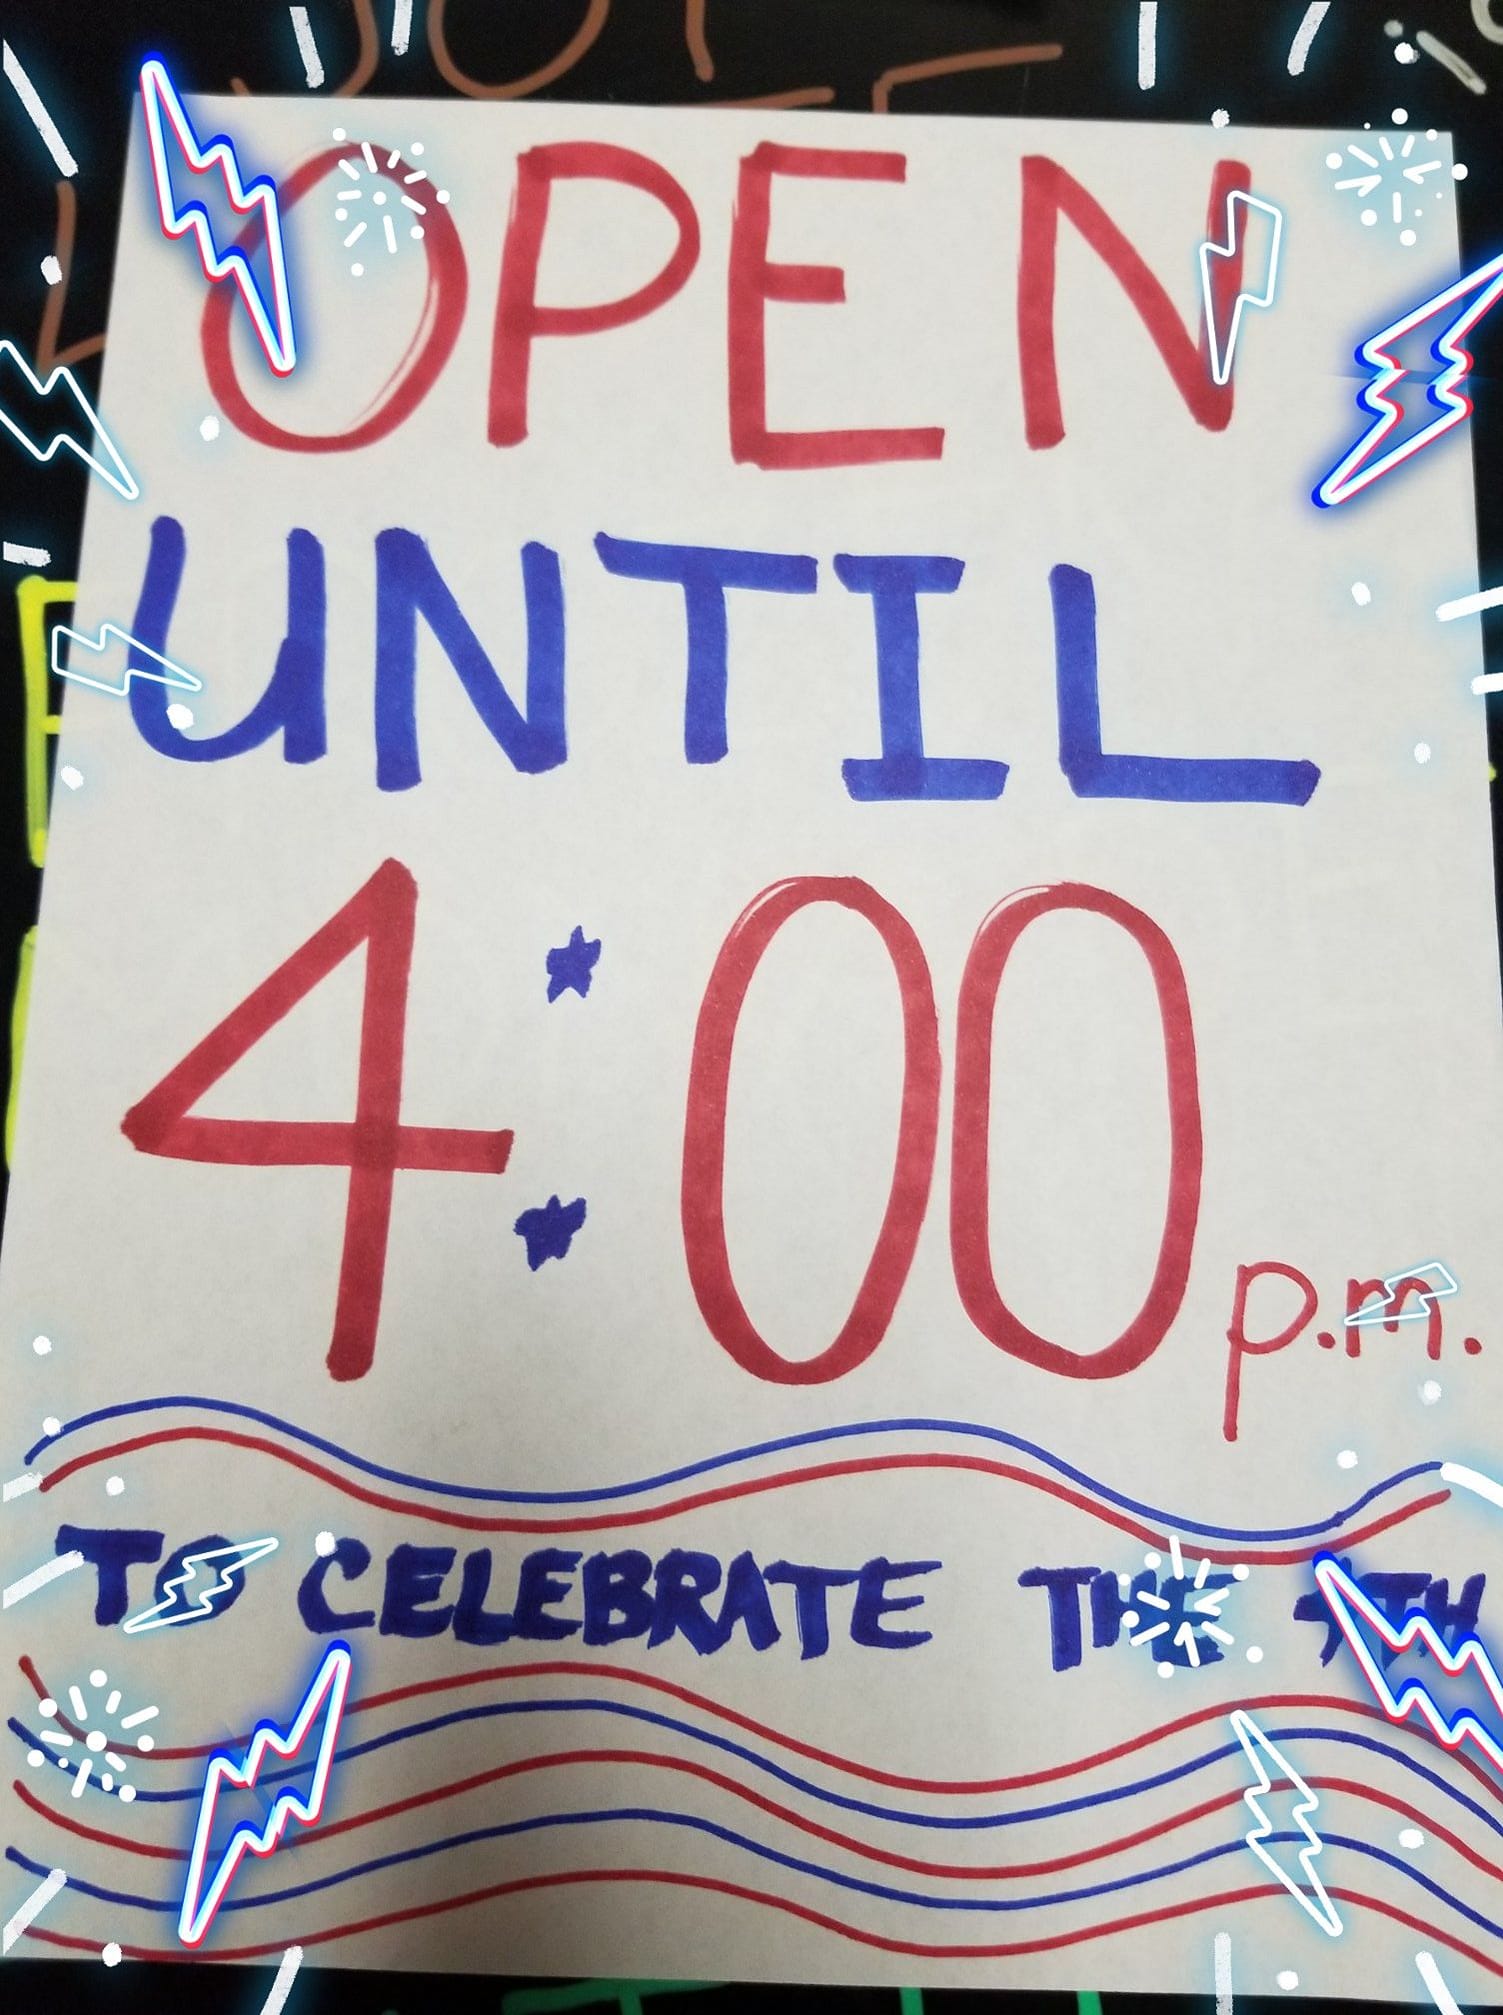 OPEN
UNTIL
4:00 p.m.
TO CELEBRATE THE 4TH